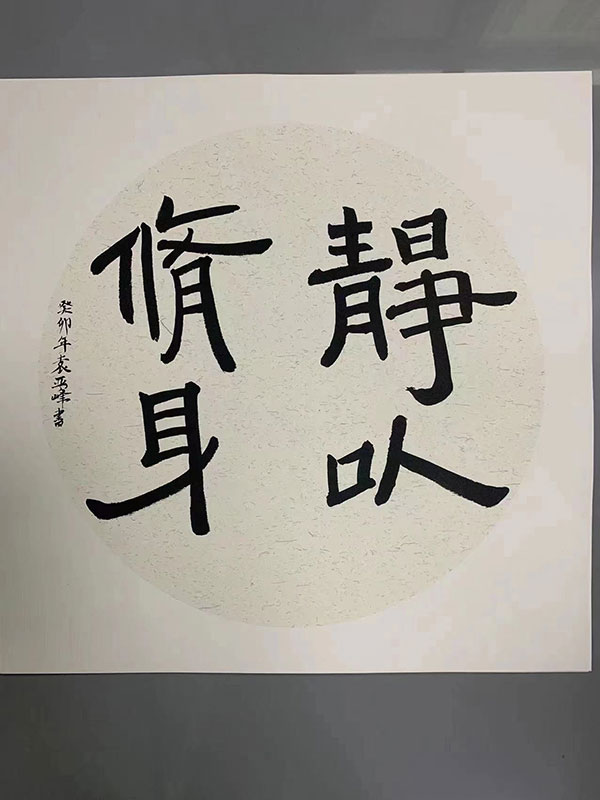 靜以
脩身
癸卯年袁亞峰書